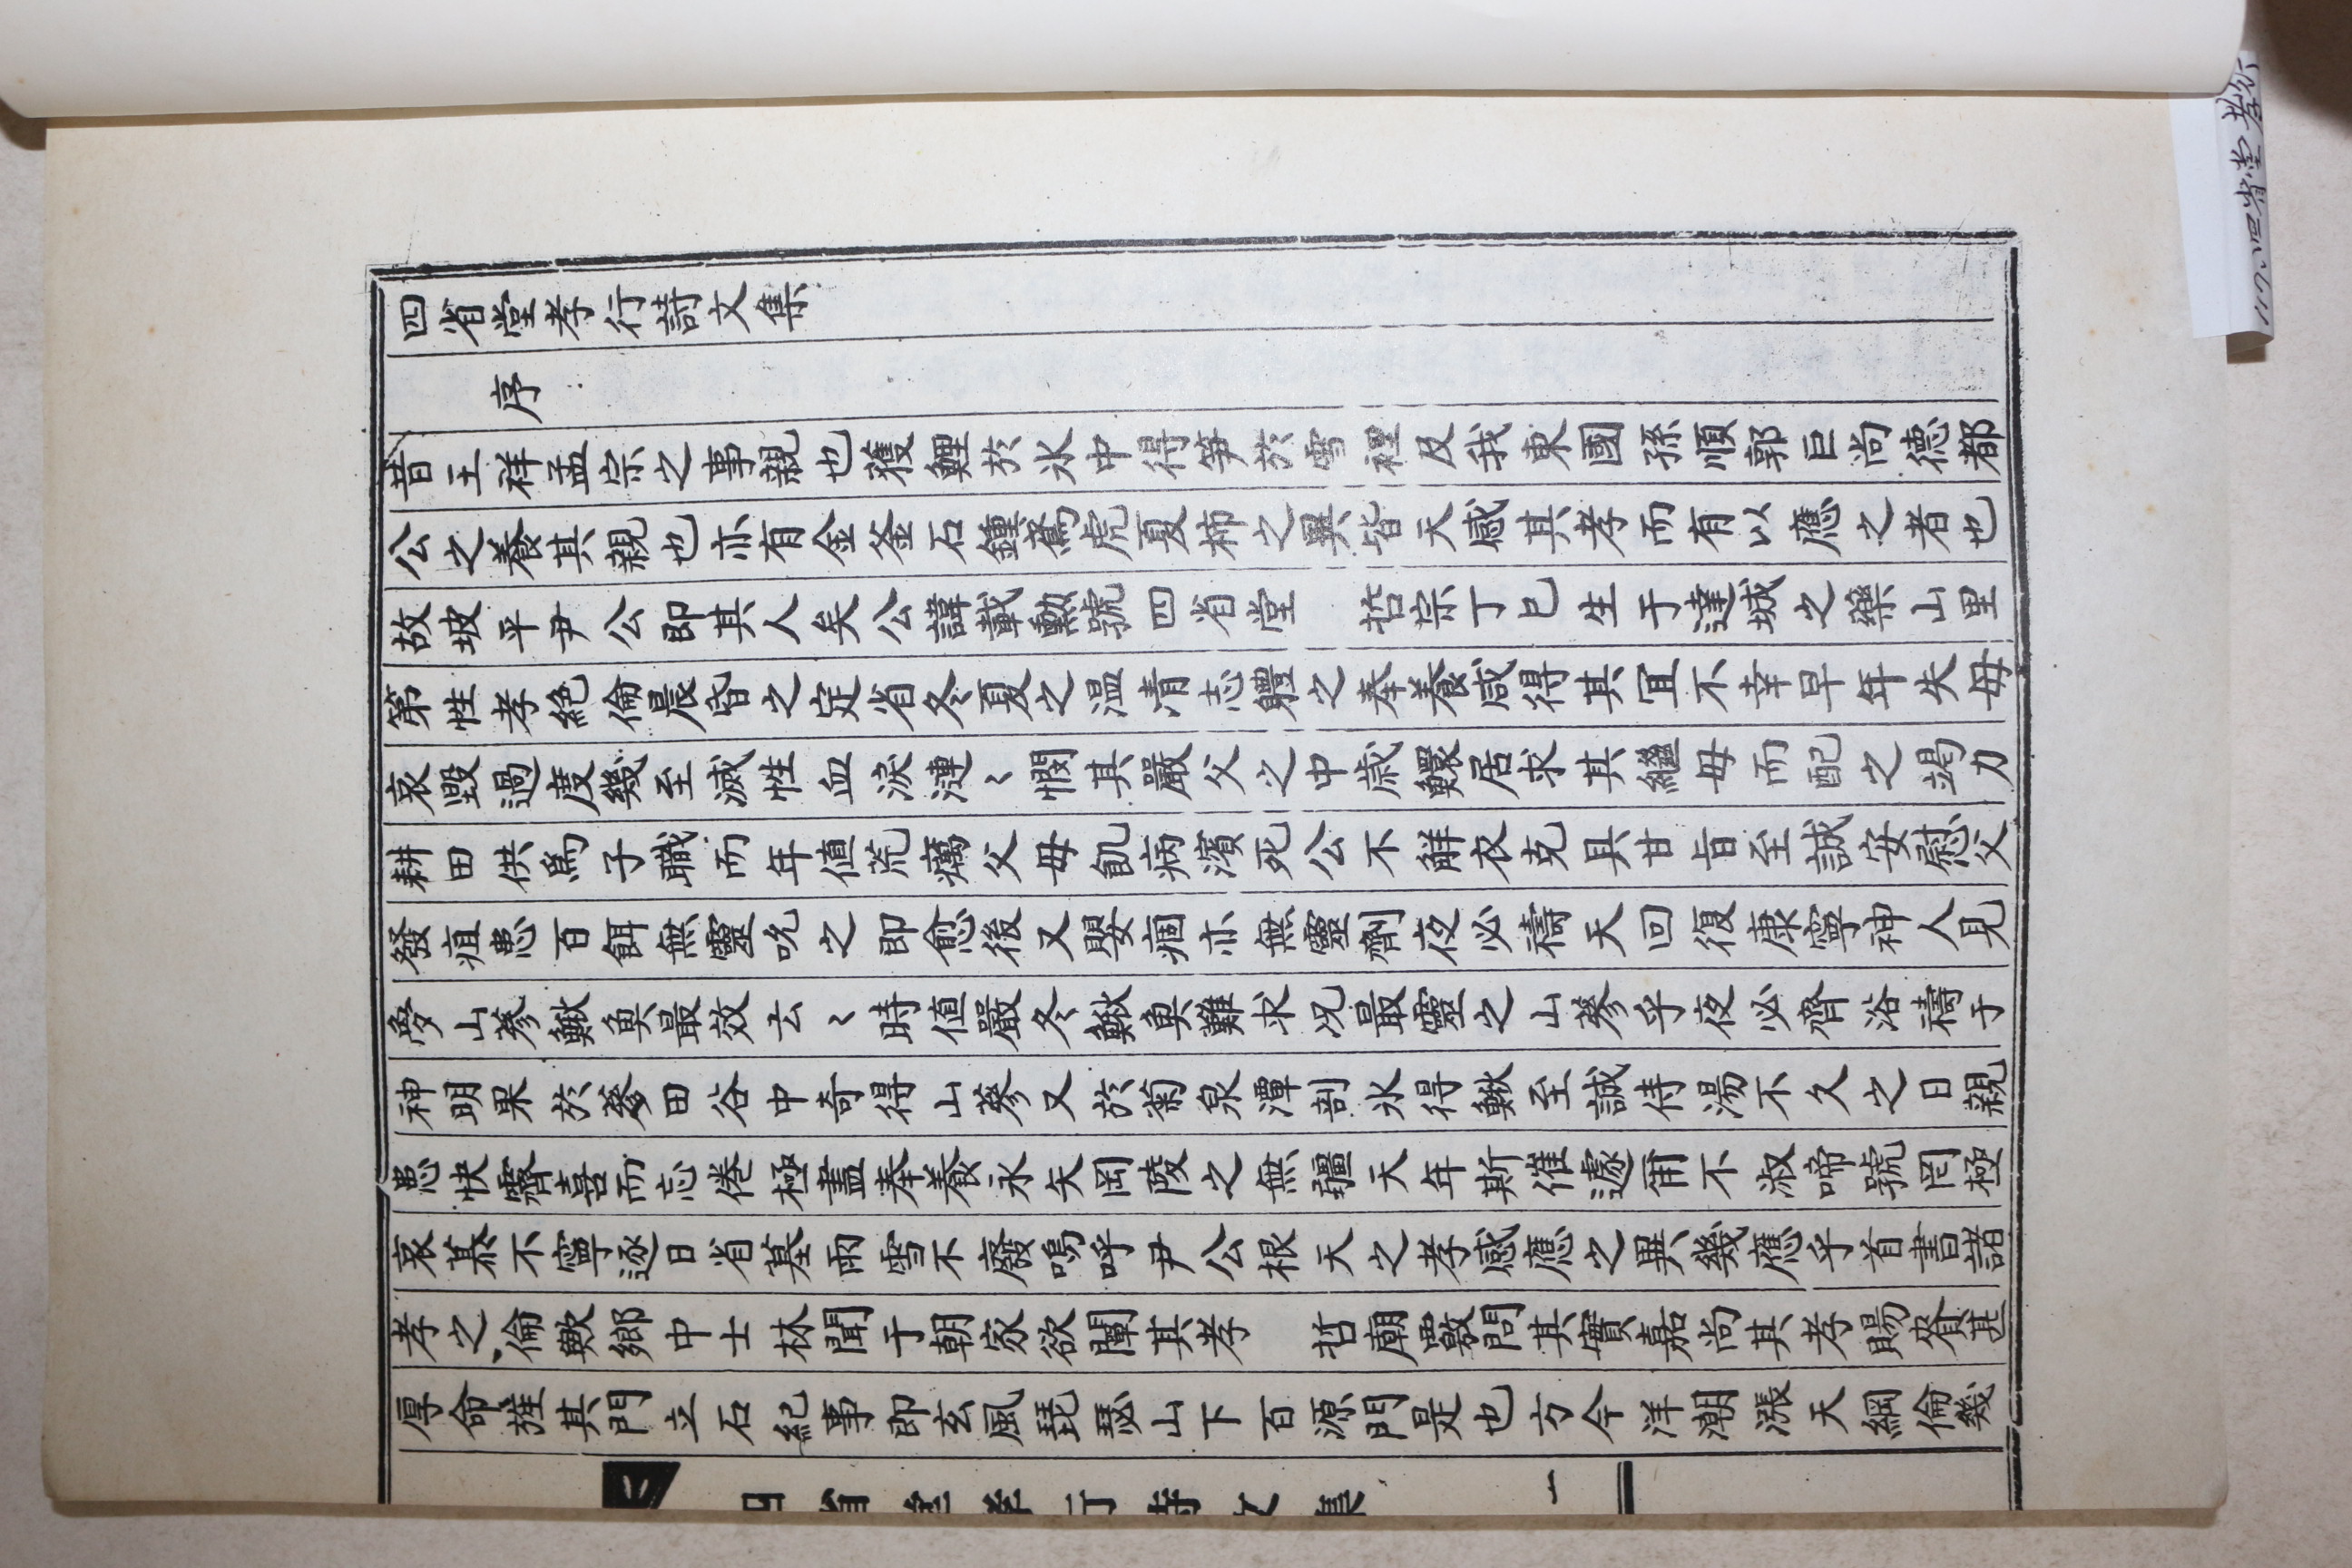 四省堂孝行詩文集
序
昔王祥孟宗之事親也獲鯉於氷中得笋於雪裡及我東國孫順郭巨尚德都
公之養其親也亦有金釜石鍾鳶虎夏柿之異皆天感其孝而有以應之者也
故坡平尹公即其人矣公諱載勳號四省堂　哲宗丁巳生于達城之藥山里
第性孝絶倫晨昏之定省冬夏之温凊志軆之奉養咸得其宜不幸早年失母
哀毀過度幾至滅性血淚漣〻憫其嚴父之中歲鰥居求其繼母而配之竭力
耕田供爲子職而年値荒癘父母飢病濱死公不解衣克具甘旨至誠安慰父
發疽患百餌無靈吮之即愈後又嬰痼亦無靈劑夜必禱天回復康寧神人見
夢山蔘鰍魚最效云〻時値嚴冬鰍魚難求况最靈之山蔘乎夜必齊浴禱于
神明果於蔘田谷中奇得山蔘又於菊泉潭剖氷得鰍至誠侍湯不久之日親
患快霽喜而忘倦極盡奉養永矢岡陵之無疆天年斯催遽爾不淑啼號罔極
哀慕不寧逐日省墓雨雪不廢嗚呼尹公根天之孝感應之異幾應乎首書諸
孝之倫歟鄉中士林聞于朝家欲闡其孝　哲廟覈問其實嘉尚其孝賜賚甚
厚命旌其門立石紀事即玄風琵瑟山下百源門是也方今洋潮漲天綱倫幾
四省堂孝行詩文集　一
四省堂孝行